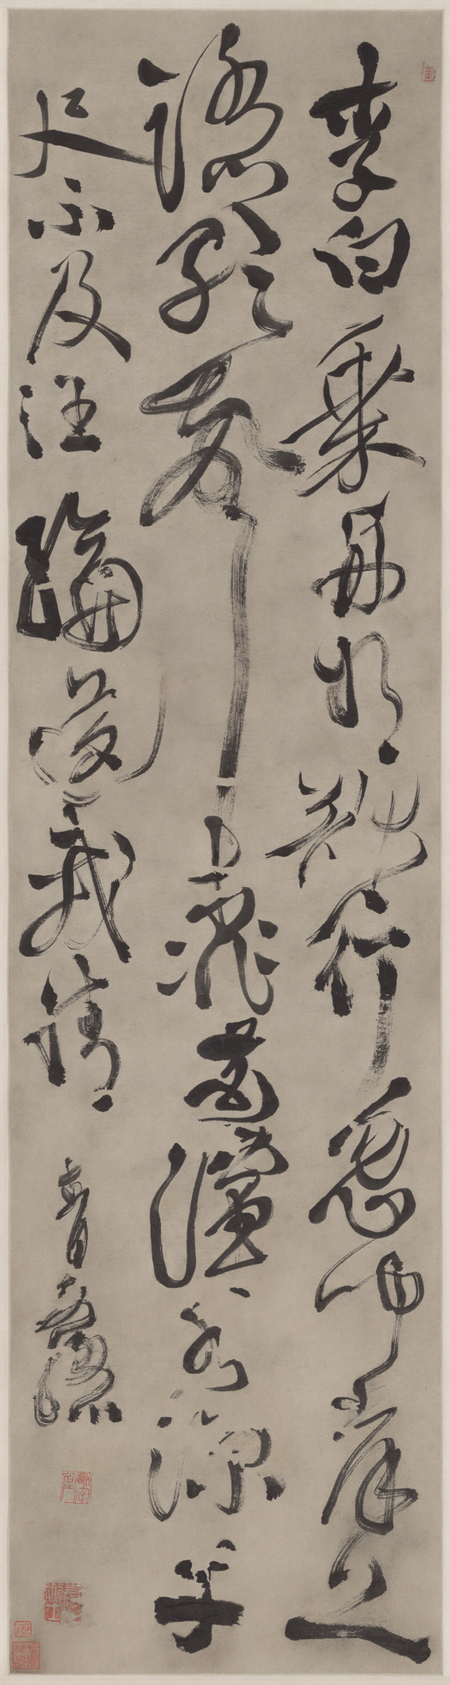 李白乘舟將欲行忽聞岸上
踏歌聲桃花潭水深千
尺不及汪倫送我情
青藤